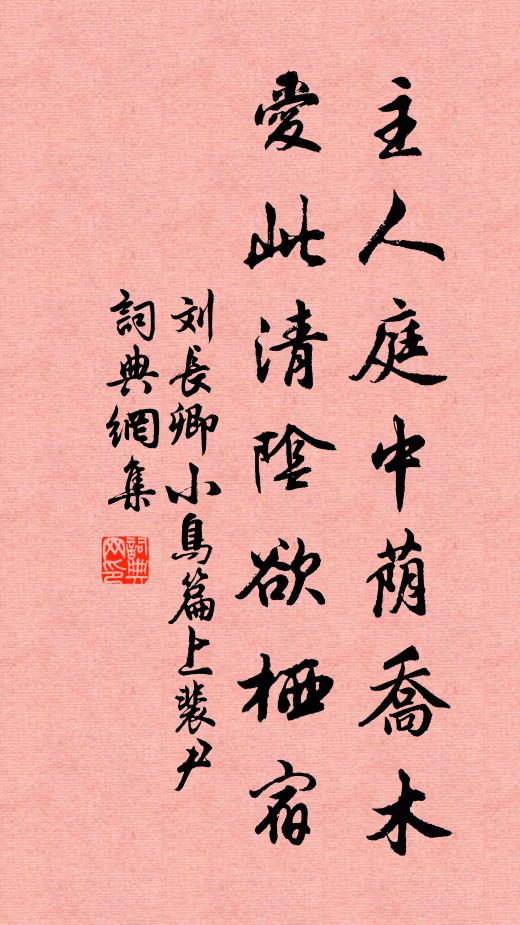 主人庭中荫喬木
愛此清陰欲栖宿
刘長卿小鳥篇上裴尹
詞典網集
詞典网印